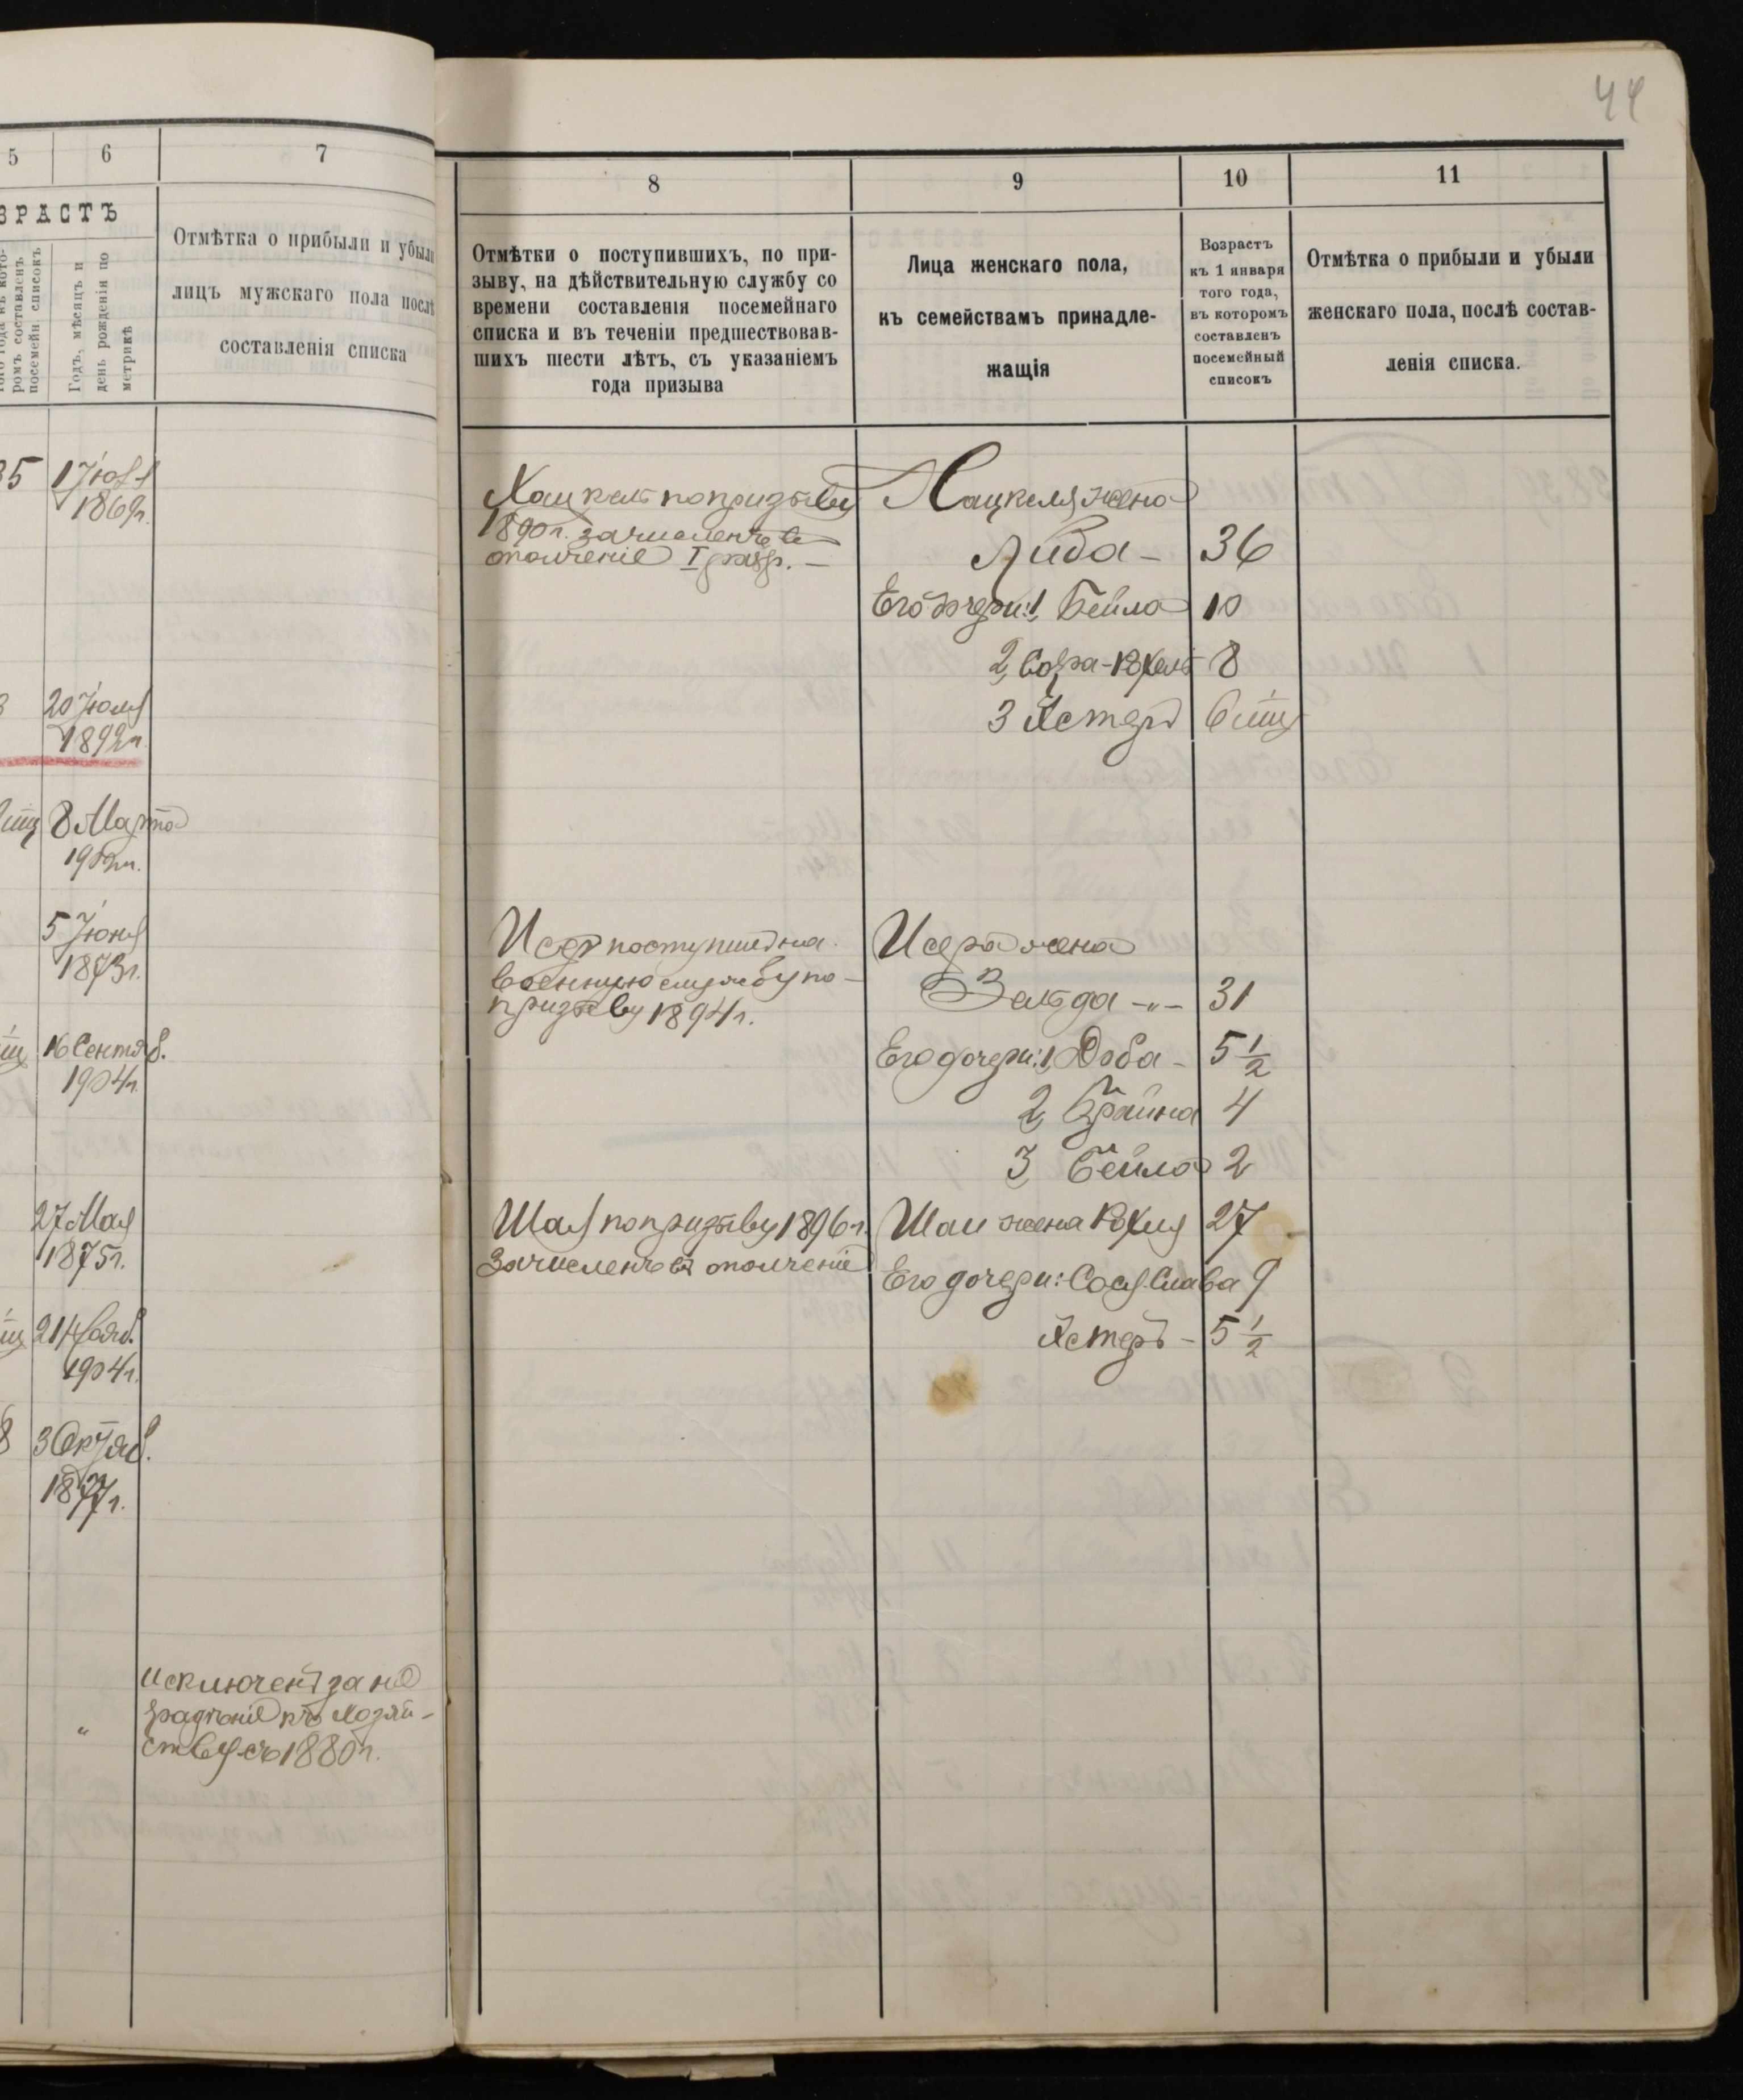 44
5 6 7
ЗРАСТЪ
ромъ составленъ
посемейн. списокъ
Годъ, мѣсяцъ и
день рожденія по
метрикѣ
Отмѣтка о прибыли и убыли
лицъ мужскаго пола послѣ
составленія списка
35
1869г.
20 Іюля
1892г.
8 Марта
1902г.
5 Іюня
1873г.
16 Сентяб.
1904г.
27 Мая
1875г.
21
1904г.
8 3 Октяб.
1877г.
"
исключенъ за не
радѣніе къ хозяй-
ству съ 1880г.
8 9 10 11
Отмѣтки о поступившихъ, по при-
зыву, на дѣйствительную службу со
времени составленія посемейнаго
списка и въ теченіи предшествовав-
шихъ шести лѣтъ, съ указаніемъ
года призыва
Лица женскаго пола,
къ семействамъ принадле-
жащія
Возрастъ
къ 1 января
того года,
въ которомъ
составленъ
посемейный
списокъ
Отмѣтка о прибыли и убыли
женскаго пола, послѣ состав-
ленія списка.
Хацкель по призыву
1890г. зачисленъ въ
ополченіе I разр. —
Хацкеля жена
Либа - 36
Его дочери: 1, Бейла 10
2, Сора-Рохель 8
3 Эстеръ
Исеръ поступилъ на
военную службу по-
призыву 1894г.
Исера жена
Зельда -"- 31
Его дочери: 1, Доба - 5 1/2
2, Брайна 4
3, Бейла 2
Шая по призыву 1896г.
зачисленъ въ ополченіе
Шаи жена Рохля 27
Его дочери: Сося-Слава 9
Эстеръ - 5 1/2